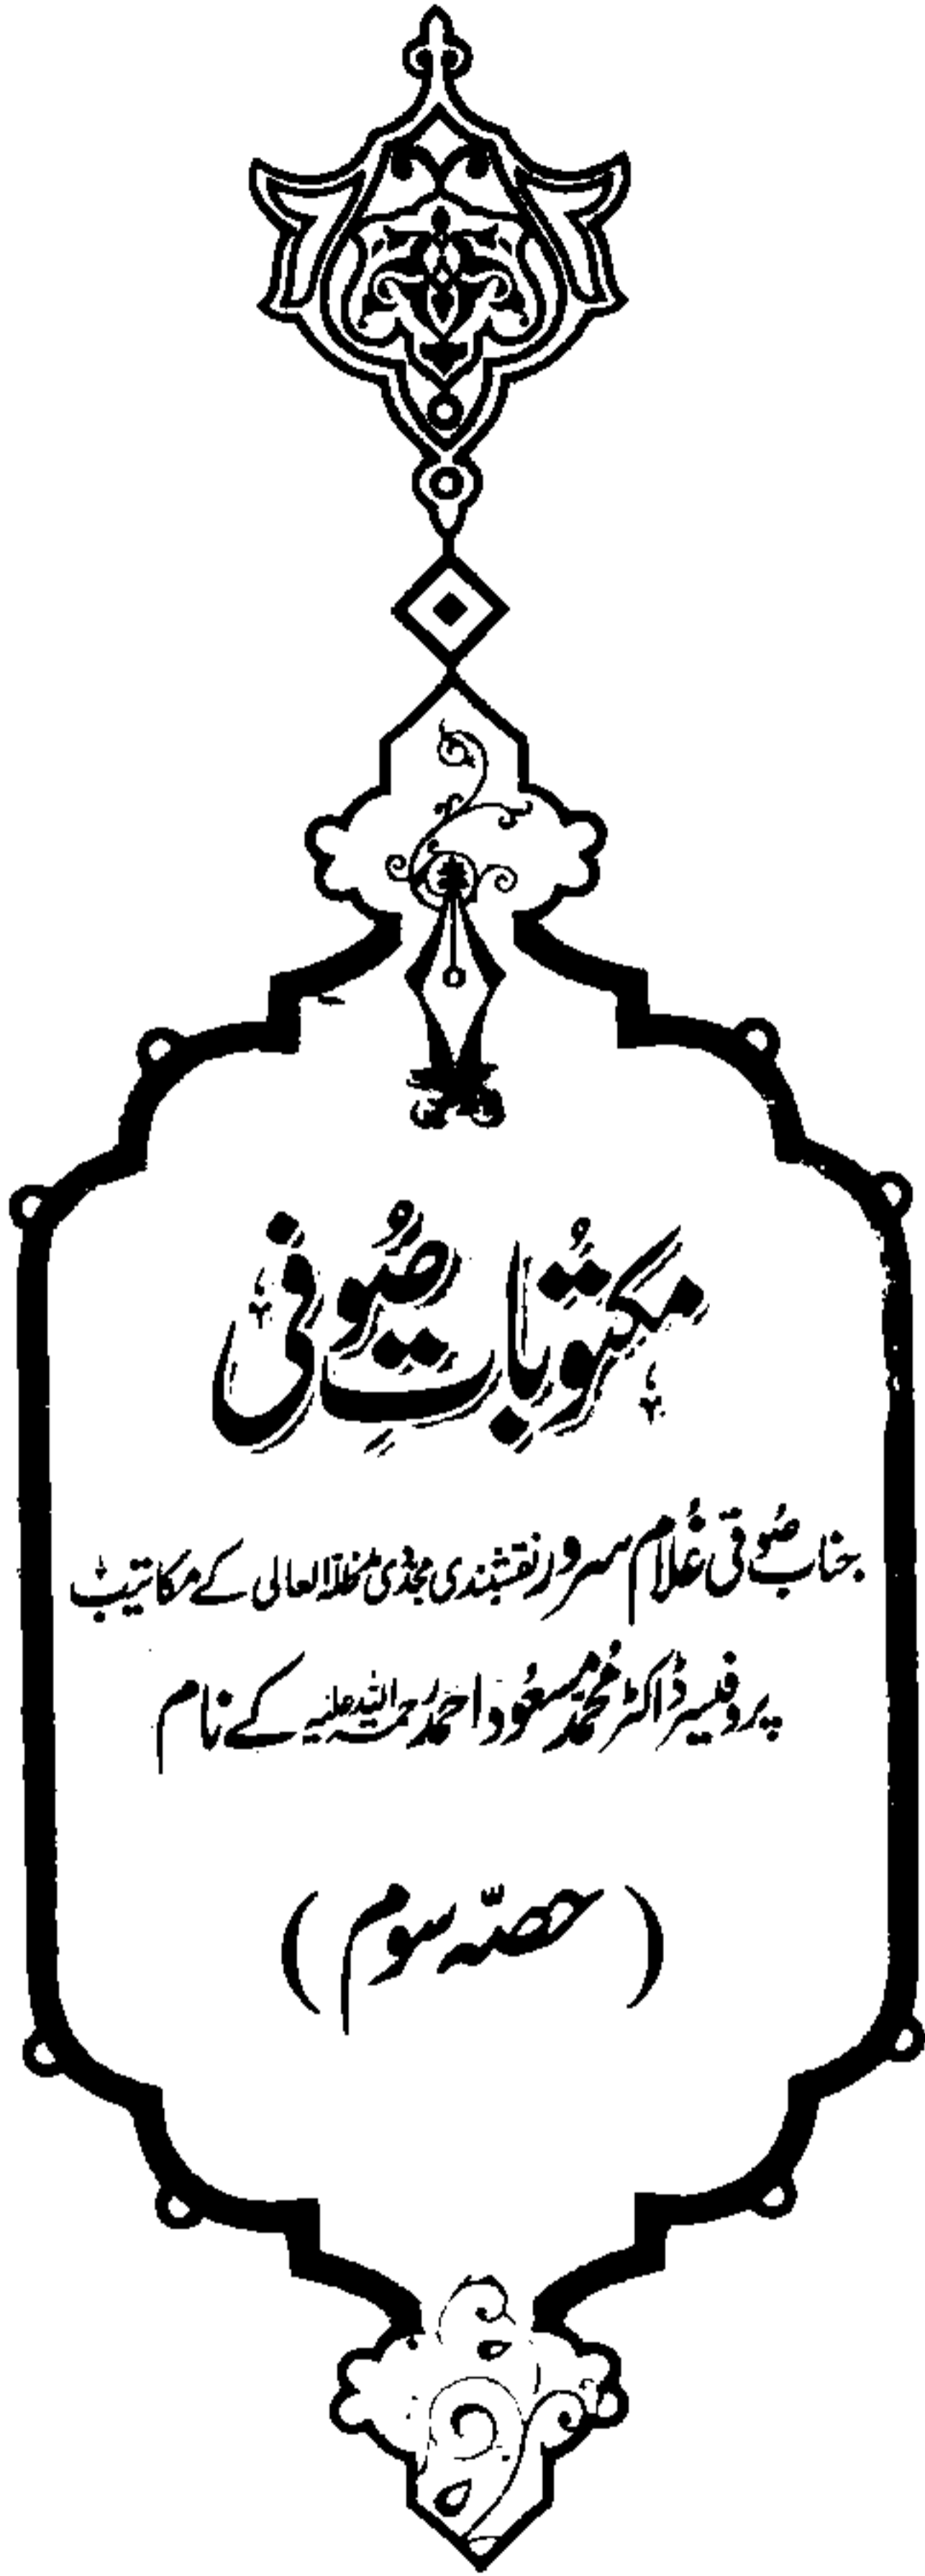 مکتوُباتِ صوُفی
جناب صوُفی غُلام سرور نقشبندی مجدّدی مدظلہ العالی کے مکاتیب
پروفیسر ڈاکٹر مُحمّد مسعُود احمد رحمۃ اللہ علیہ کے نام
( حصّہ سوم )